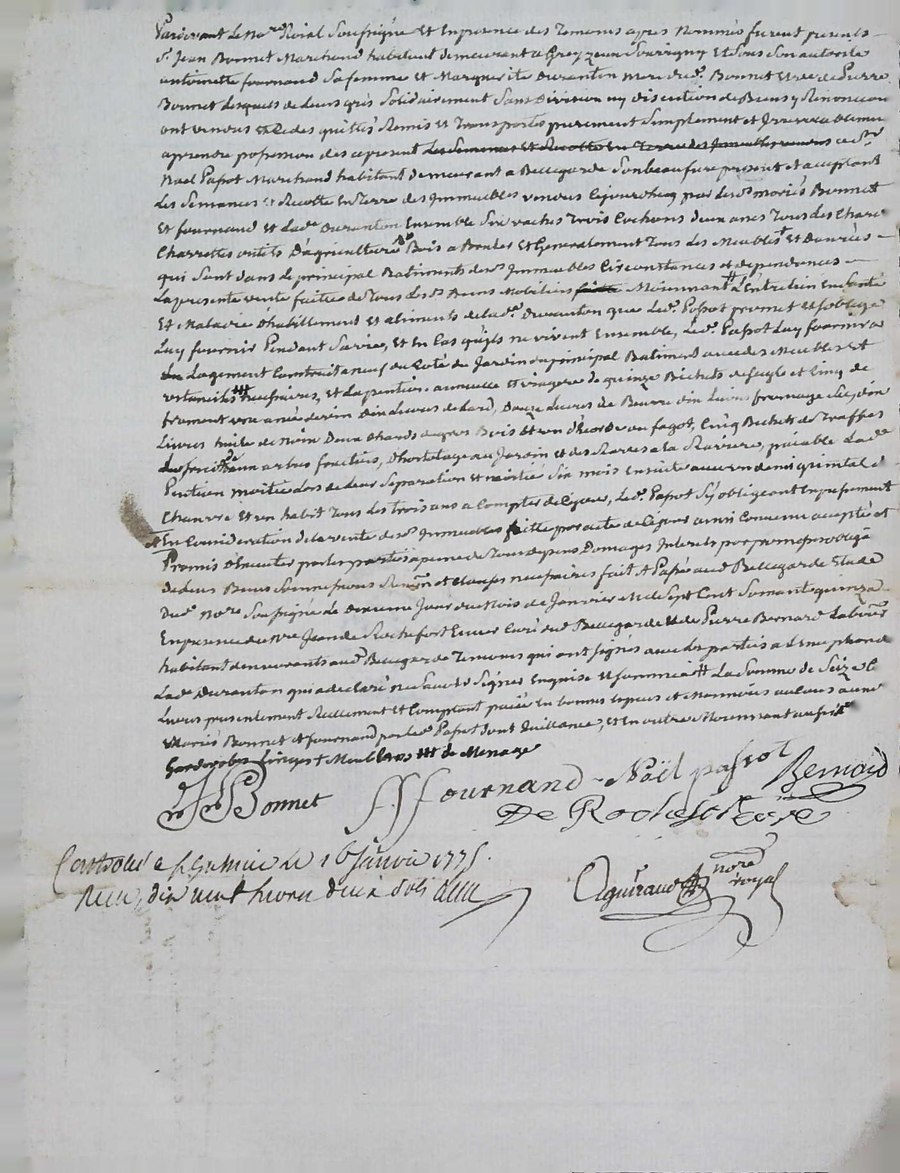 Pardevant Le No.re Roial Soussigné et En presence des Temoins apres Nommés furent presents
S.r Jean Bonnet Marchand habitant demeurant a Grezieux Souvigny Et Sous Son autorité
antoinette fournand Sa femme et Marguerite Duranton Mere du d. Bonnet et v.e de Pierre
Bonnet Lesquels de Leurs grés Solidairement Sans Division ny discution de Biens y Renonceant
ont vendus Cedes quittés Remis et Transportés purement Simplement et Irrevocablement
aprendre possession des apresent Les Semences et Recoltes En Terre des Immeubles vendus ce S.r
Noel Passot Marchand habitant demeurant a Bellegarde Son beaufrere present et acceptant
Les Semences et Recolte En Terre des Immeubles vendus Cejourdhuy par Les d. mariés Bonnet
Et fournand et La d. Duranton Ensemble Six vaches Trois Cochons deux anes Tous Les Chars
Charrettes outils D'agriculture Bois a Bruler Et Generalement Tous Les Meubles Et Denrées
qui Sont dans Le principal Batiments des d. Immeubles Circonstances et dependances
La presente vente faitte de Tous Les d. Biens Mobiliers Moiennant L'Entretien En Santé
Et Maladie d'habillement Et aliments de La d. Duranton que Le d. Passot promet et S'oblige
Luy fournir Pendant Sa vie, et En Cas qu'ils ne vivent Ensemble, Le d. Passot Luy fournira
Un Logement Construit a neuf du Coté du Jardin du principal Batiment avec des Meubles Et
ustenciles Necessaires, et La pention annuelle et viagere de quinze Bichets de Seigle et Cinq de
froment une anée de vin dix Livres de Lard, Douze Livres de Beurre dix Livres fromage Sec, dix
Livres huile de noix Deux Chards de gros Bois Et un du fagot, Cinq Bichets de Truffes
arbes fruitiers, d'hortolage au Jardin et des Raves a la Raviere, paiable La d.
Pention moitié Lors de Leur Separation et moitié Six mois Ensuite avec un demi quintal de
Chanvre Et un habit Tous Les trois ans a Compter de Ce jour, Le d. Passot S'y obligeant Expressement
En Consideration de La vente des d. Immeubles faitte par acte de Ce jour ainsi Convenu accepté et
Promis d'Executer par Les parties a peine de Tous depens Domages Interets par promesse oblig.on
de Leurs Biens Soumissions Renon.on et Clauses necessaires fait et Passé aud. Bellegarde Etude
Dud. No.re Soussigné Le Dixieme Jour du Mois de Janvier Mil Sept Cent Soixante quinze
En presence de M.re Jean de Rochefort Curé dud. Bellegarde et de Pierre Bernard Laboureur
habitant demeurants aud. Bellegarde Temoins qui ont Signés avec Les parties a L'exception de
La d. Duranton qui a declaré ne Savoir Signer Enquise et Sommée La Somme de Seize C.
Livres presentement Reellement et Comptant paiée En bonnes Especes et Monnoies au Cours aux
Mariés Bonnet et fournand par Le d. Passot Dont Quittance, et En outre Moiennant
Garderobes Linges Meubles de Menage
J Bonnet   fournand   Noël passot   Bernard
De Rochefort Curé
Controlé a S.t Galmier Le 16 Janvier 1775.
Recu dix neuf livres deux Sols
Aguiraud no.re royal